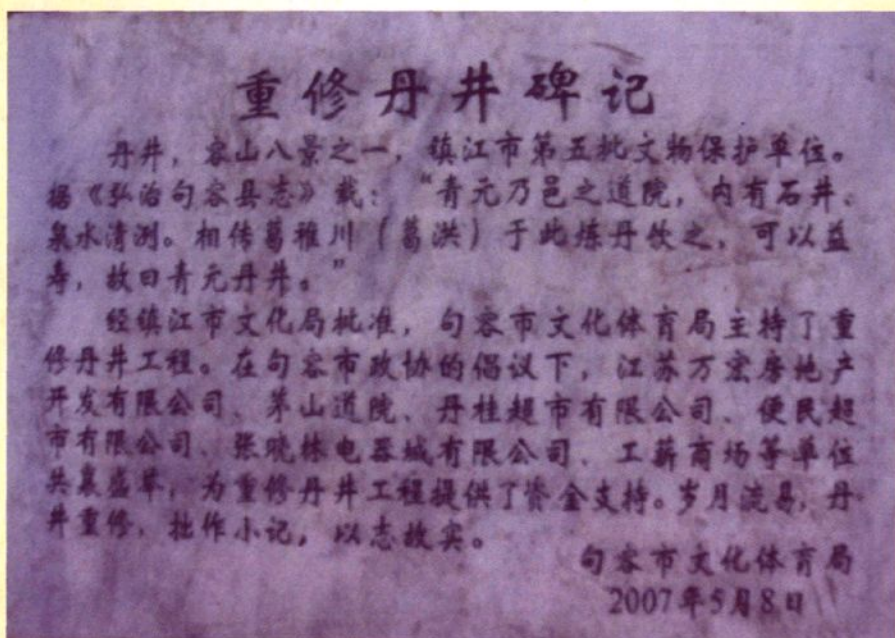 重修丹井碑记
丹井，容山八景之一，镇江市第五批文物保护单位。
据《弘治句容县志》载：“青元乃邑之道院，内有石井、
泉水清洌。相传葛稚川（葛洪）于此炼丹饮之，可以益
寿，故曰青元丹井。”
经镇江市文化局批准，句容市文化体育局主持了重
修丹井工程。在句容市政协的倡议下，江苏万宏房地产
开发有限公司、茅山道院、丹桂超市有限公司、便民超
市有限公司、张晓林电器城有限公司、工薪商场等单位
共襄盛举，为重修丹井工程提供了资金支持。岁月流易，丹
井重修，拙作小记，以志故实。
句容市文化体育局
2007年5月8日